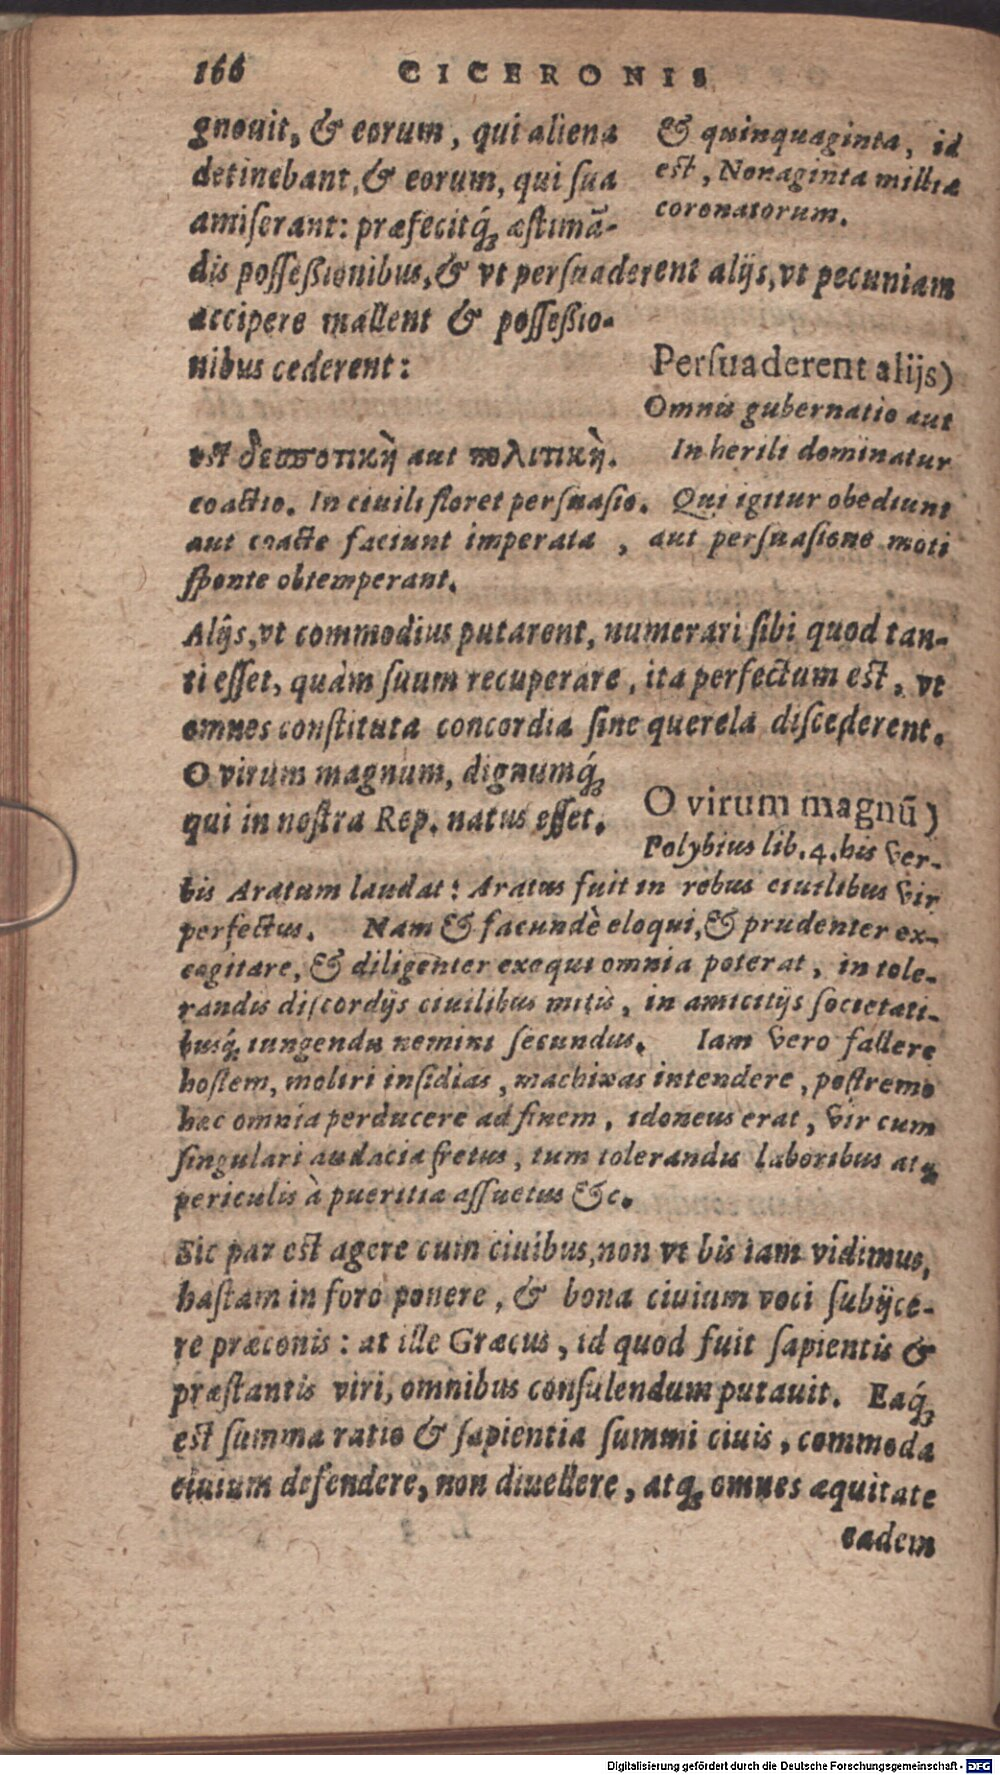 166 CICERONIS
gnouit, & eorum, qui aliena
detinebant, & eorum, qui ſua
amiſerant: præfecitq́; æſtimā-
& quinquaginta, id
eſt, Nonaginta millia
coronatorum.
dis poſſeßionibus, & vt perſuaderent alijs, vt pecuniam
accipere mallent & poſſeßio-
nibus cederent:
Perſuaderent alijs)
Omnis gubernatio aut
eſt δεσποτικὴ aut πολιτικὴ. In herili dominatur
coactio. In ciuili floret perſuaſio. Qui igitur obediunt
aut coacte faciunt imperata, aut perſuaſione moti
ſponte obtemperant.
Alijs, vt commodius putarent, numerari ſibi quod tan-
ti eſſet, quàm ſuum recuperare, ita perfectum eſt, vt
omnes conſtituta concordia ſine querela diſcederent.
O virum magnum, dignumq́;
qui in noſtra Rep. natus eſſet.
O virum magnū)
Polybius lib. 4. his ver-
bis Aratum laudat: Aratus fuit in rebus ciuilibus vir
perfectus. Nam & facundè eloqui, & prudenter ex-
cogitare, & diligenter exequi omnia poterat, in tole-
randis diſcordijs ciuilibus mitis, in amicitijs ſocietati-
busq́; iungendis nemini ſecundus. Iam vero fallere
hoſtem, moliri inſidias, machinas intendere, poſtremo
hæc omnia perducere ad finem, idoneus erat, vir cum
ſingulari audacia fretus, tum tolerandis laboribus atq;
periculis à pueritia aſſuetus &c.
Sic par eſt agere cum ciuibus, non vt bis iam vidimus,
haſtam in foro ponere, & bona ciuium voci ſubijce-
re præconis: at ille Græcus, id quod fuit ſapientis &
præſtantis viri, omnibus conſulendum putauit. Eaq́;
eſt ſumma ratio & ſapientia ſummi ciuis, commoda
ciuium defendere, non diuellere, atq; omnes æquitate
eadem
Digitalisierung gefördert durch die Deutsche Forschungsgemeinschaft - DFG